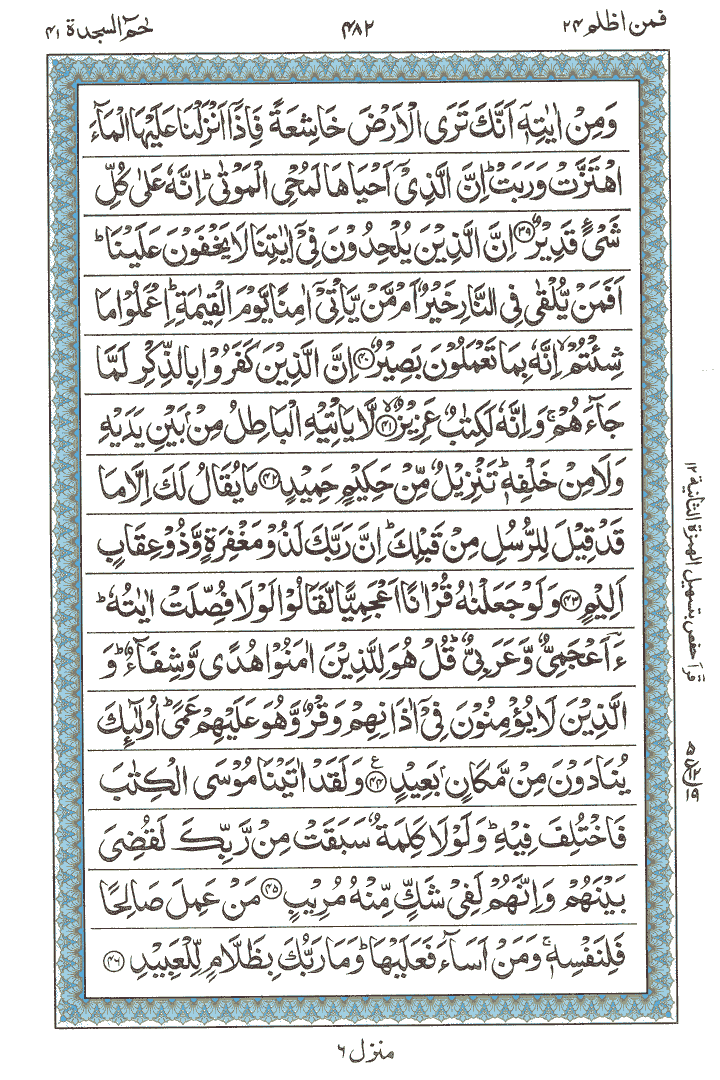 فمن اظلم ۲۴
۴۸۲
حٰمٓ السجدة ۴۱
وَمِنْ اٰيٰتِهٖۤ اَنَّكَ تَرَى الْاَرْضَ خَاشِعَةً فَاِذَاۤ اَنْزَلْنَا عَلَيْهَا الْمَآءَ
اهْتَزَّتْ وَرَبَتْ ؕ اِنَّ الَّذِيْۤ اَحْيَاهَا لَمُحْيِ الْمَوْتٰى ؕ اِنَّهٗ عَلٰى كُلِّ
شَيْءٍ قَدِيْرٌ ﴿۳۹﴾ اِنَّ الَّذِيْنَ يُلْحِدُوْنَ فِيْۤ اٰيٰتِنَا لَا يَخْفَوْنَ عَلَيْنَا ؕ
اَفَمَنْ يُّلْقٰى فِي النَّارِ خَيْرٌ اَمْ مَّنْ يَّاْتِيْۤ اٰمِنًا يَّوْمَ الْقِيٰمَةِ ؕ اِعْمَلُوْا مَا
شِئْتُمْ ۙ اِنَّهٗ بِمَا تَعْمَلُوْنَ بَصِيْرٌ ﴿۴۰﴾ اِنَّ الَّذِيْنَ كَفَرُوْا بِالذِّكْرِ لَمَّا
جَآءَهُمْ ۚ وَاِنَّهٗ لَكِتٰبٌ عَزِيْزٌ ﴿۴۱﴾ۙ لَّا يَاْتِيْهِ الْبَاطِلُ مِنْۢ بَيْنِ يَدَيْهِ
وَلَا مِنْ خَلْفِهٖ ؕ تَنْزِيْلٌ مِّنْ حَكِيْمٍ حَمِيْدٍ ﴿۴۲﴾ مَا يُقَالُ لَكَ اِلَّا مَا
قَدْ قِيْلَ لِلرُّسُلِ مِنْ قَبْلِكَ ؕ اِنَّ رَبَّكَ لَذُوْ مَغْفِرَةٍ وَّذُوْ عِقَابٍ
اَلِيْمٍ ﴿۴۳﴾ وَلَوْ جَعَلْنٰهُ قُرْاٰنًا اَعْجَمِيًّا لَّقَالُوْا لَوْلَا فُصِّلَتْ اٰيٰتُهٗ ؕ
ءَاَعْجَمِيٌّ وَّعَرَبِيٌّ ؕ قُلْ هُوَ لِلَّذِيْنَ اٰمَنُوْا هُدًى وَّشِفَآءٌ ؕ وَ
الَّذِيْنَ لَا يُؤْمِنُوْنَ فِيْۤ اٰذَانِهِمْ وَقْرٌ وَّهُوَ عَلَيْهِمْ عَمًى ؕ اُولٰٓئِكَ
يُنَادَوْنَ مِنْ مَّكَانٍۭ بَعِيْدٍ ﴿۴۴﴾ ع وَلَقَدْ اٰتَيْنَا مُوْسَى الْكِتٰبَ
فَاخْتُلِفَ فِيْهِ ؕ وَلَوْلَا كَلِمَةٌ سَبَقَتْ مِنْ رَّبِّكَ لَقُضِيَ
بَيْنَهُمْ ؕ وَاِنَّهُمْ لَفِيْ شَكٍّ مِّنْهُ مُرِيْبٍ ﴿۴۵﴾ مَنْ عَمِلَ صَالِحًا
فَلِنَفْسِهٖ ۚ وَمَنْ اَسَآءَ فَعَلَيْهَا ؕ وَمَا رَبُّكَ بِظَلَّامٍ لِّلْعَبِيْدِ ﴿۴۶﴾
قرأ حفص بتسهيل الهمزة الثانية ۱۲
منزل ۶